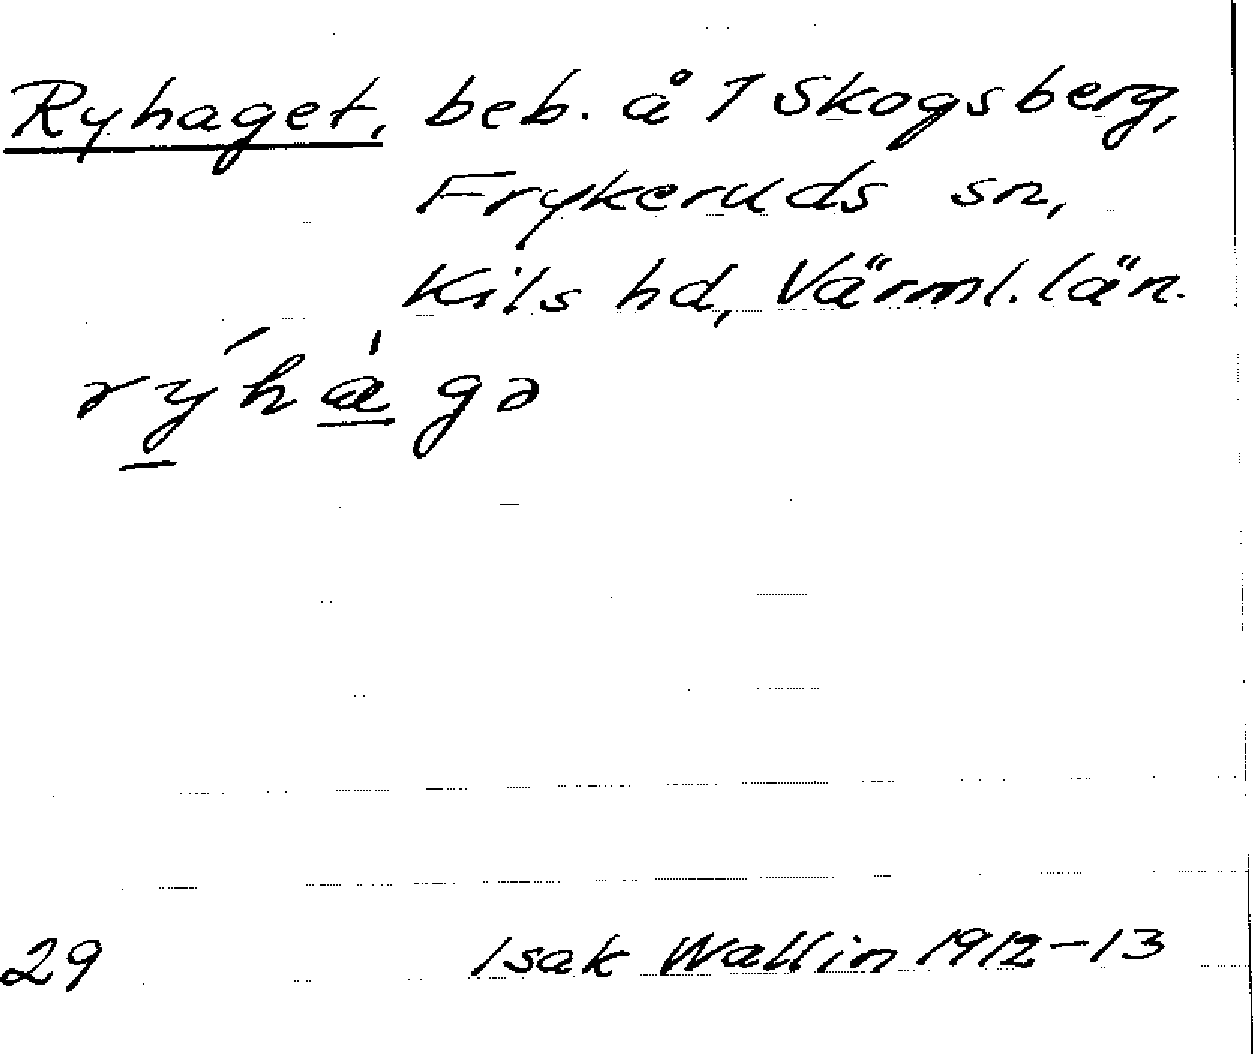 Ryhaget, beb. å 1 Skogsberg,
Frykeruds sn,
Kils hd, Värml. län.
rýhàgə
29 Isak Wallin 1912-13